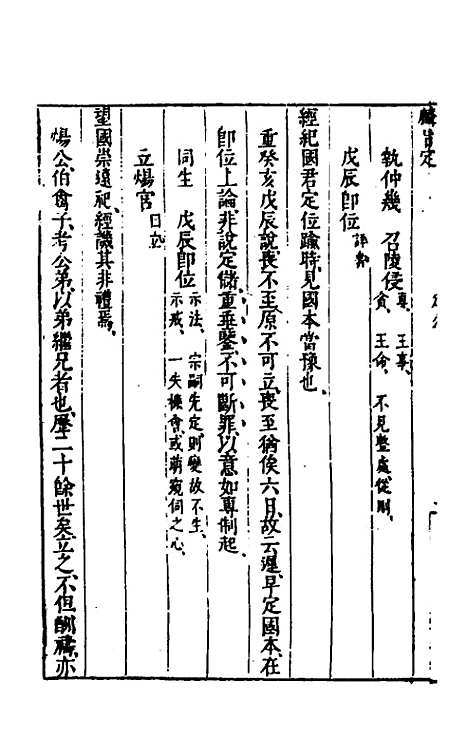 麟旨定
執仲幾　召陵侵　專、王事、
貪、王命、不見整處從削、
戊辰即位
經紀國君定位踰時、見國本當豫也、
重癸亥戊辰說、喪不至、原不可立、喪至猶俟六日、故云遲、早定國本、在
即位上論、非說定儲、重垂鑒、不可斷罪、以意如專制起、
同生　戊辰即位　示法、宗嗣先定則變故不生、
示戒、一失機會、或萌窺伺之心、
立煬宮
望國崇遠祀、經譏其非禮焉、
煬公、伯禽子、考公弟、以弟繼兄者也、歷二十餘世矣、立之、不但酬禱、亦